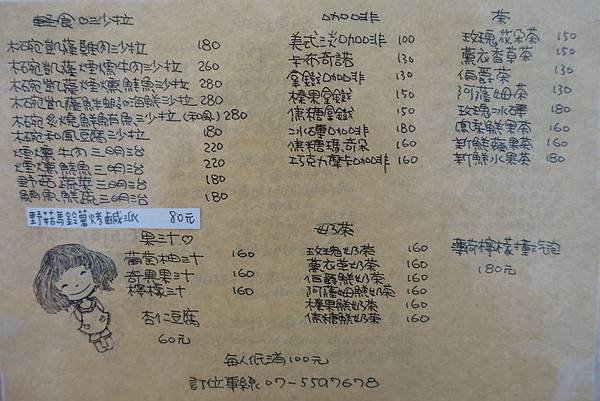 輕食。沙拉
木碗凱薩雞肉沙拉 180
木碗凱薩煙燻牛肉沙拉 260
木碗凱薩煙燻鮭魚沙拉 260
木碗凱薩鮮蝦海鮮沙拉 280
木碗炙燒鮮鮪魚沙拉(和風) 280
木碗和風豆腐沙拉 180
煙燻牛肉三明治 220
煙燻鮭魚三明治 220
野菇蔬菜三明治 180
鯛魚鮮蔬三明治 180
野菇馬鈴薯烤鹹派 80元
咖啡
美式淡咖啡 100
卡布奇諾 130
拿鐵咖啡 130
榛果拿鐵 150
焦糖拿鐵 150
冰磚咖啡 160
焦糖瑪奇朵 160
巧克力摩卡咖啡 160
茶
玫瑰花朵茶 150
薰衣香草茶 150
伯爵茶 130
阿薩姆茶 130
玫瑰冰磚 180
鳳梨鮮果茶 160
新鮮蘋果茶 160
新鮮水果茶 180
果汁♡
葡萄柚汁 160
奇異果汁 160
檸檬汁 160
杏仁豆腐
60元
奶茶
玫瑰奶茶 160
薰衣草奶茶 160
伯爵鮮奶茶 160
阿薩姆鮮奶茶 160
榛果鮮奶茶 160
焦糖鮮奶茶 160
薄荷檸檬撞汽泡
180元
每人低消100元
訂位專線:07-5597678